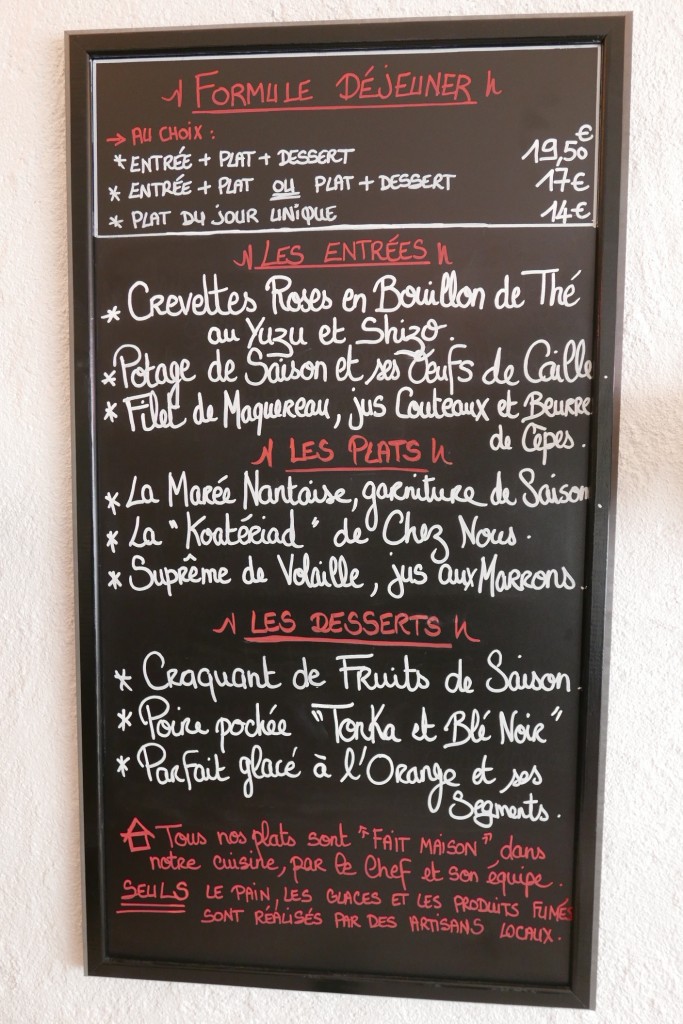 FORMULE DÉJEUNER
→ AU CHOIX :
* ENTRÉE + PLAT + DESSERT 19,50€
* ENTRÉE + PLAT OU PLAT + DESSERT 17€
* PLAT DU JOUR UNIQUE 14€
LES ENTRÉES
* Crevettes Roses en Bouillon de Thé
au Yuzu et Shizo.
* Potage de Saison et ses Oeufs de Caille.
* Filet de Maquereau, jus Couteaux et Beurre
de Cèpes.
LES PLATS
* La Marée Nantaise, garniture de Saison.
* La "Koatériad" de Chez Nous.
* Suprême de Volaille, jus aux Marrons.
LES DESSERTS
* Craquant de Fruits de Saison.
* Poire pochée "Tonka et Blé Noir"
* Parfait glacé à l'Orange et ses
Segments.
Tous nos plats sont "FAIT MAISON" dans
notre cuisine, par le Chef et son équipe.
SEULS LE PAIN, LES GLACES ET LES PRODUITS FUMÉS
SONT RÉALISÉS PAR DES ARTISANS LOCAUX.